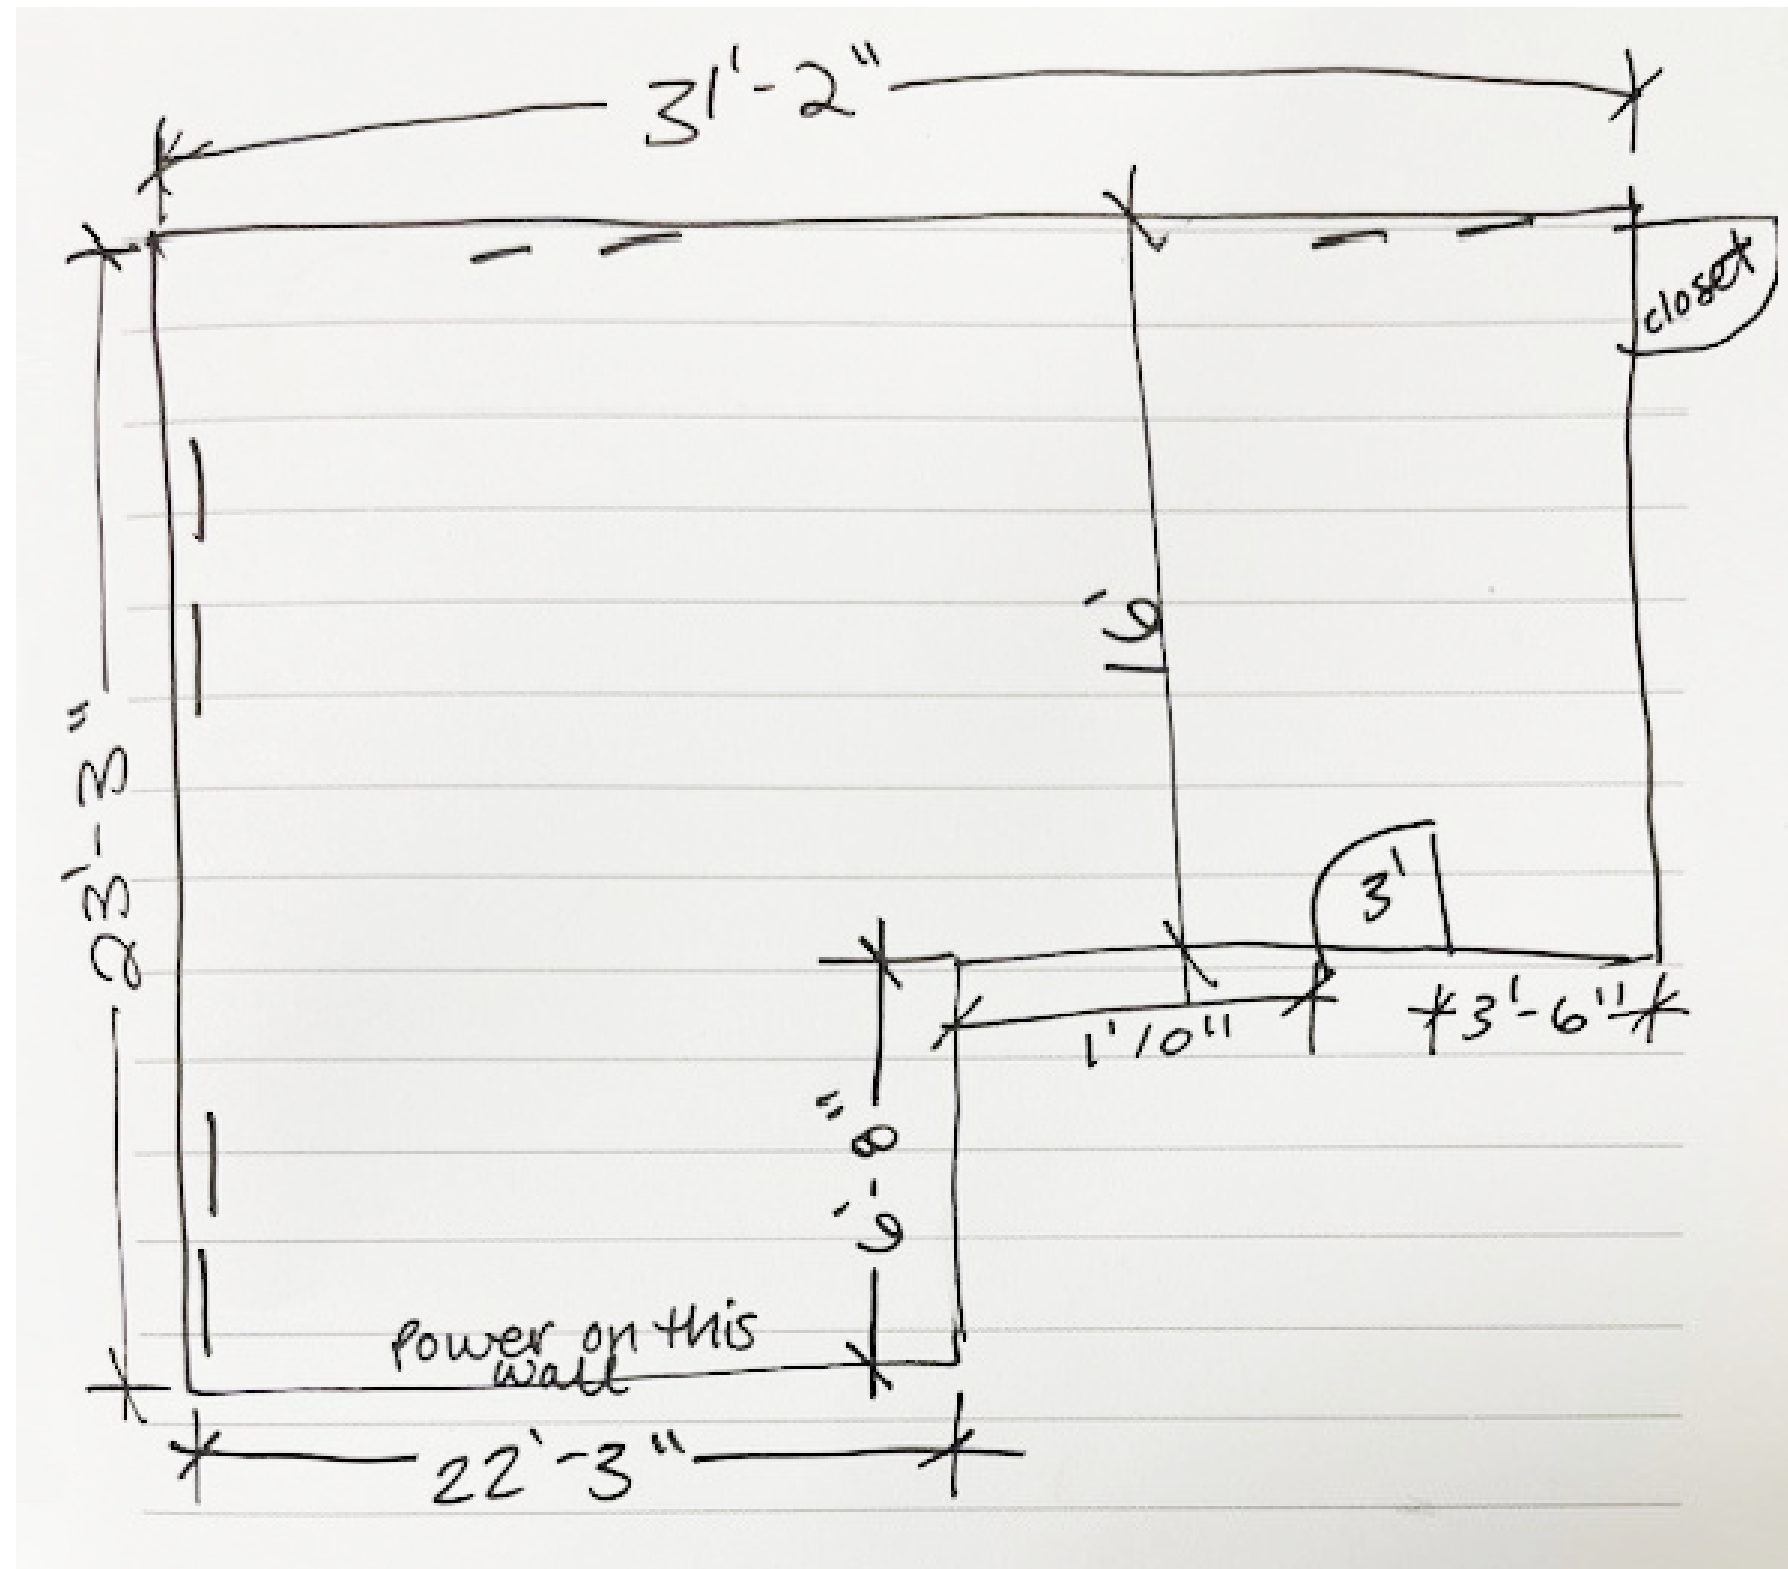 31'-2"
closet
16'
23'-3"
3'
3'-6"
1'10"
6'-8"
Power on this
wall
22'-3"